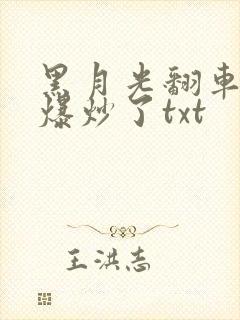 黑月光翻車
爆炒了txt
王洪志